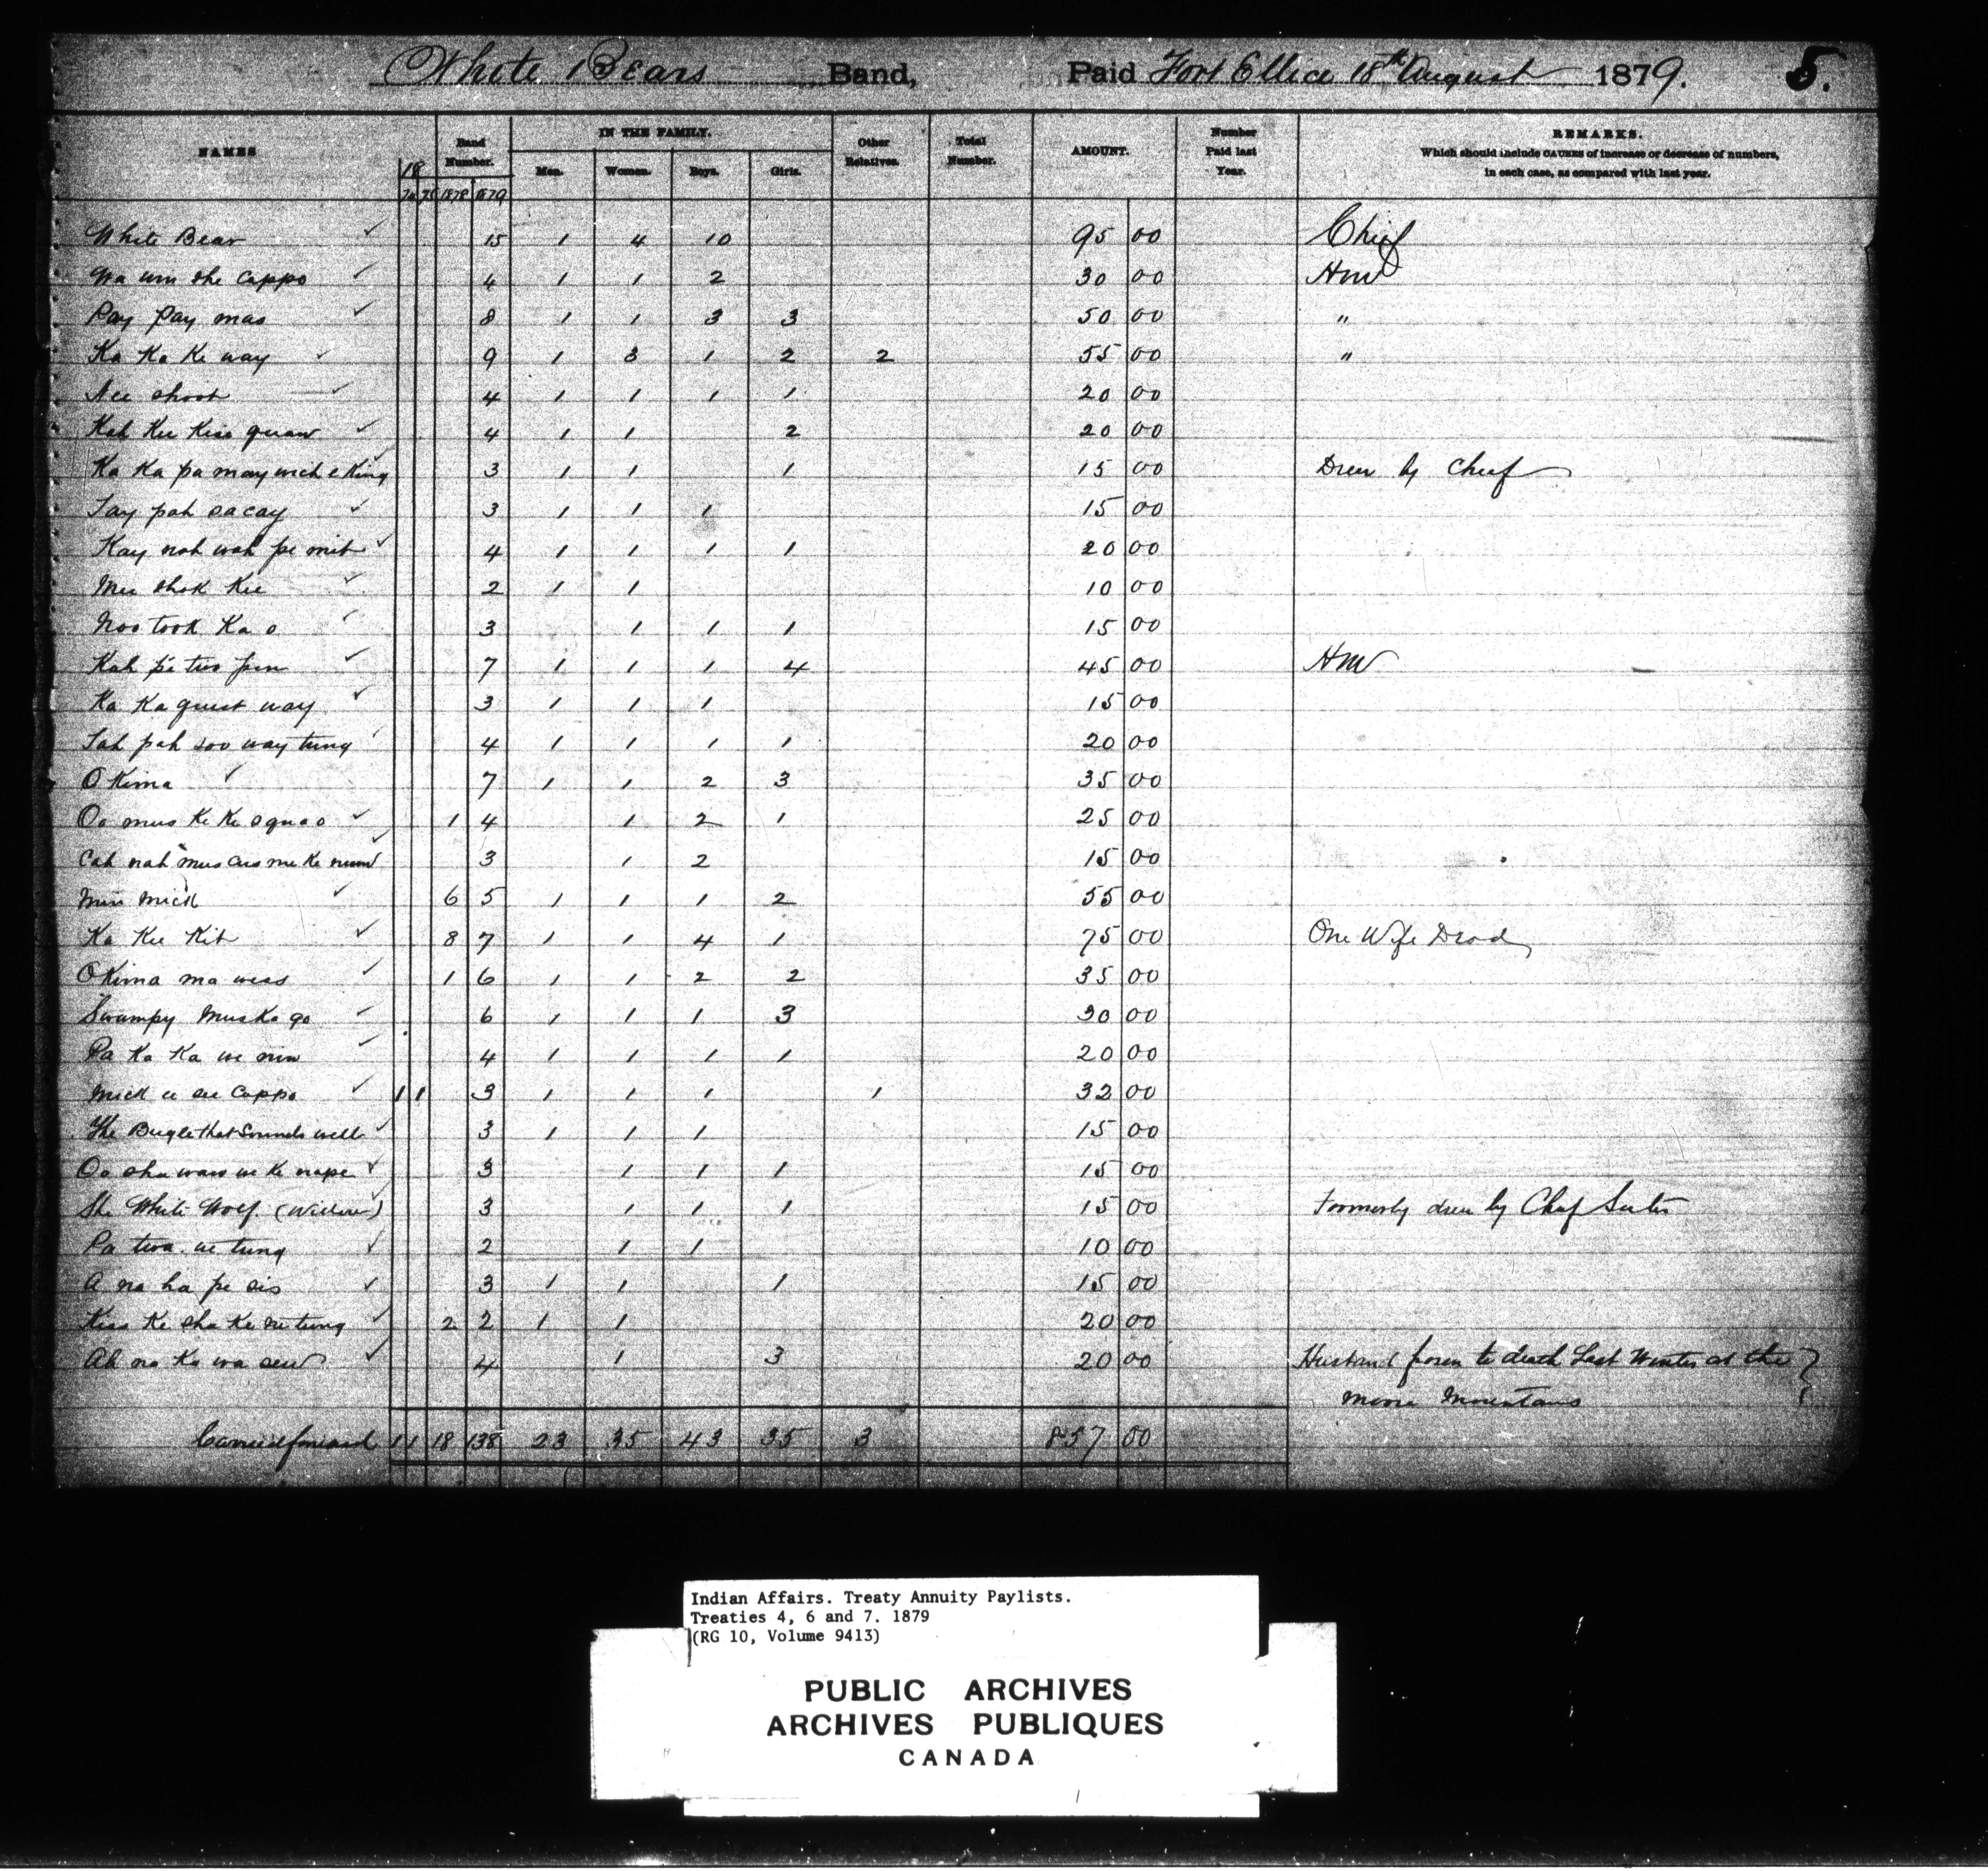 White Bears Band, Paid Fort Ellice 18th August 1879. 5.
NAMES 18 Band Number. IN THE FAMILY. Other Relatives. Total Number. AMOUNT. Number Paid last Year. REMARKS.
Which should include CAUSES of increase or decrease of numbers,
in each case, as compared with last year.
74 75 1878 1879 Men. Women. Boys. Girls.
White Bear ✓ 15 1 4 10 95 00 Chief
Wa um she cappo ✓ 4 1 1 2 30 00 Hm
Pay Pay mas ✓ 8 1 1 3 3 50 00 "
Ka Ka Ke way ✓ 9 1 3 1 2 2 55 00 "
Nee shoot ✓ 4 1 1 1 1 20 00
Kah Kee Kiss quaw ✓ 4 1 1 2 20 00
Ka Ka pa may wich e King ✓ 3 1 1 1 15 00 Drew by Chief
Tay pah sacay ✓ 3 1 1 1 15 00
Kay nah wah pe mit ✓ 4 1 1 1 1 20 00
Mee shok Kee ✓ 2 1 1 10 00
Noo took Ka o ✓ 3 1 1 1 15 00
Kah pe two pen ✓ 7 1 1 1 4 45 00 Hm
Ka Ka quist way ✓ 3 1 1 1 15 00
Tah pah soo way tung ✓ 4 1 1 1 1 20 00
O Kima ✓ 7 1 1 2 3 35 00
Oo mus Ke Ke squa o ✓ 1 4 1 2 1 25 00
Cah nah mus cus me Ke num ✓ 3 1 2 15 00
Min mick ✓ 6 5 1 1 1 2 55 00
Ka Kee Kit ✓ 8 7 1 1 4 1 75 00 One Wife Dead
O Kima ma wess ✓ 1 6 1 1 2 2 35 00
Swampy Muska go ✓ 6 1 1 1 3 30 00
Pa Ka Ka we nin ✓ 4 1 1 1 1 20 00
Mick e see Cappo ✓ 1 1 3 1 1 1 1 32 00
The Bugle that Sounds well ✓ 3 1 1 1 15 00
Oo sha waw we Ke nape ✓ 3 1 1 1 15 00
The White Wolf. (Widow) ✓ 3 1 1 1 15 00 Formerly drew by Chief Sister
Pa twa we tung ✓ 2 1 1 10 00
A na ha pe sis ✓ 3 1 1 1 15 00
Kiss Ke sha Ke se tung ✓ 2 2 1 1 20 00
Ah na Ka wa sew ✓ 4 1 3 20 00 Husband frozen to death Last Winter at the }
Moose Mountains
Carried forward 1 1 18 138 23 35 43 35 3 857 00
Indian Affairs. Treaty Annuity Paylists.
Treaties 4, 6 and 7. 1879
(RG 10, Volume 9413)
PUBLIC ARCHIVES
ARCHIVES PUBLIQUES
CANADA